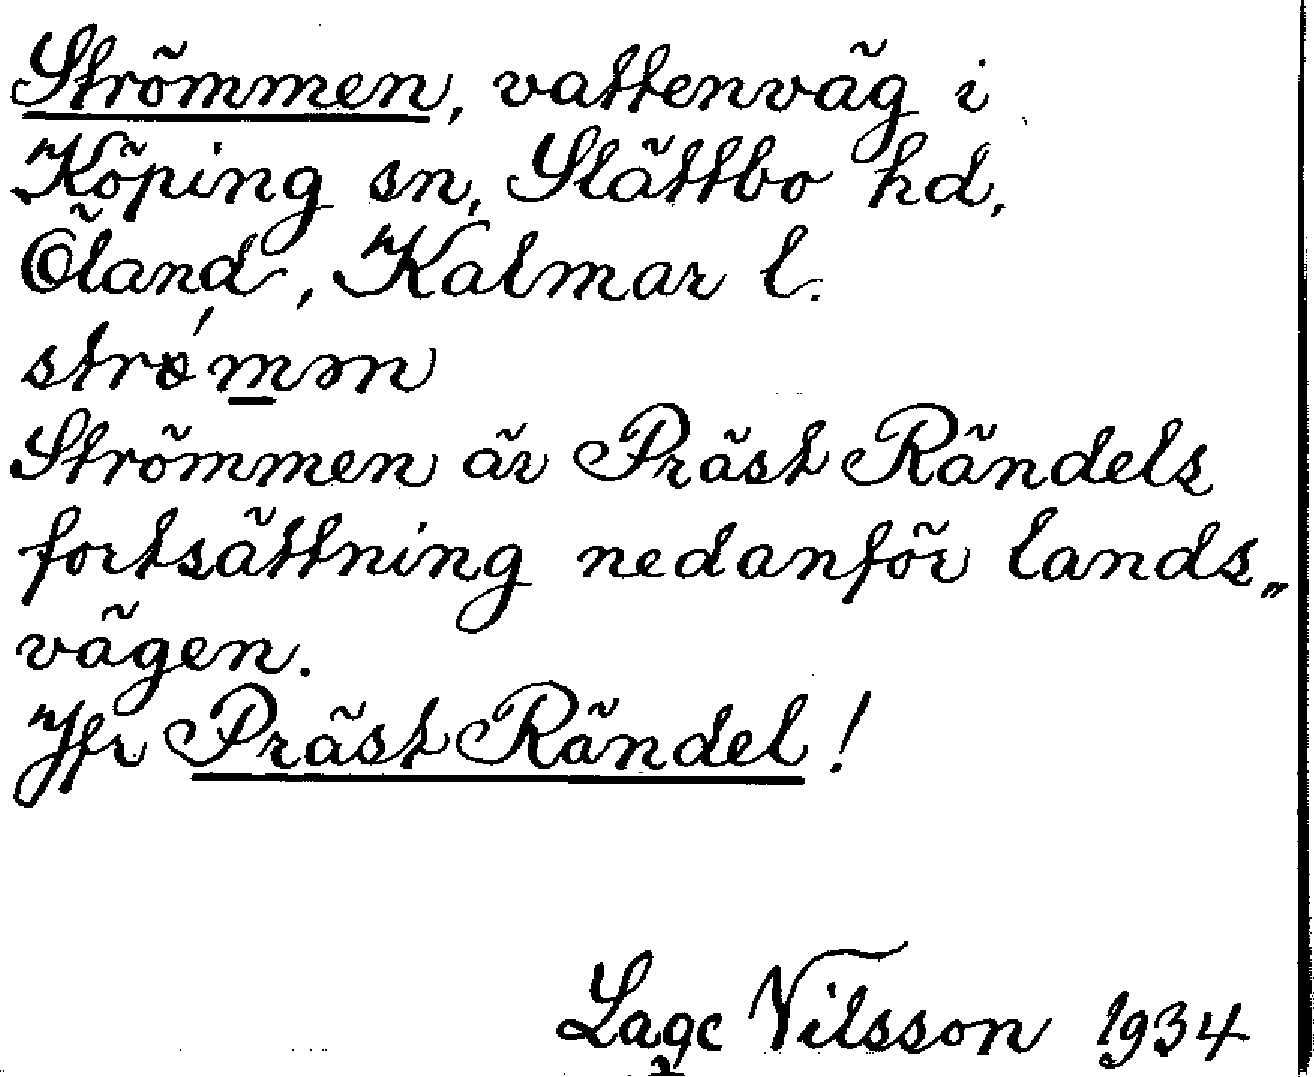 Strömmen, vattenväg i
Köping sn, Slättbo hd,
Öland, Kalmar l.
strø´mən
Strömmen är Präst Rändels
fortsättning nedanför lands„
vägen.
Jfr Präst Rändel!
Lage Nilsson 1934